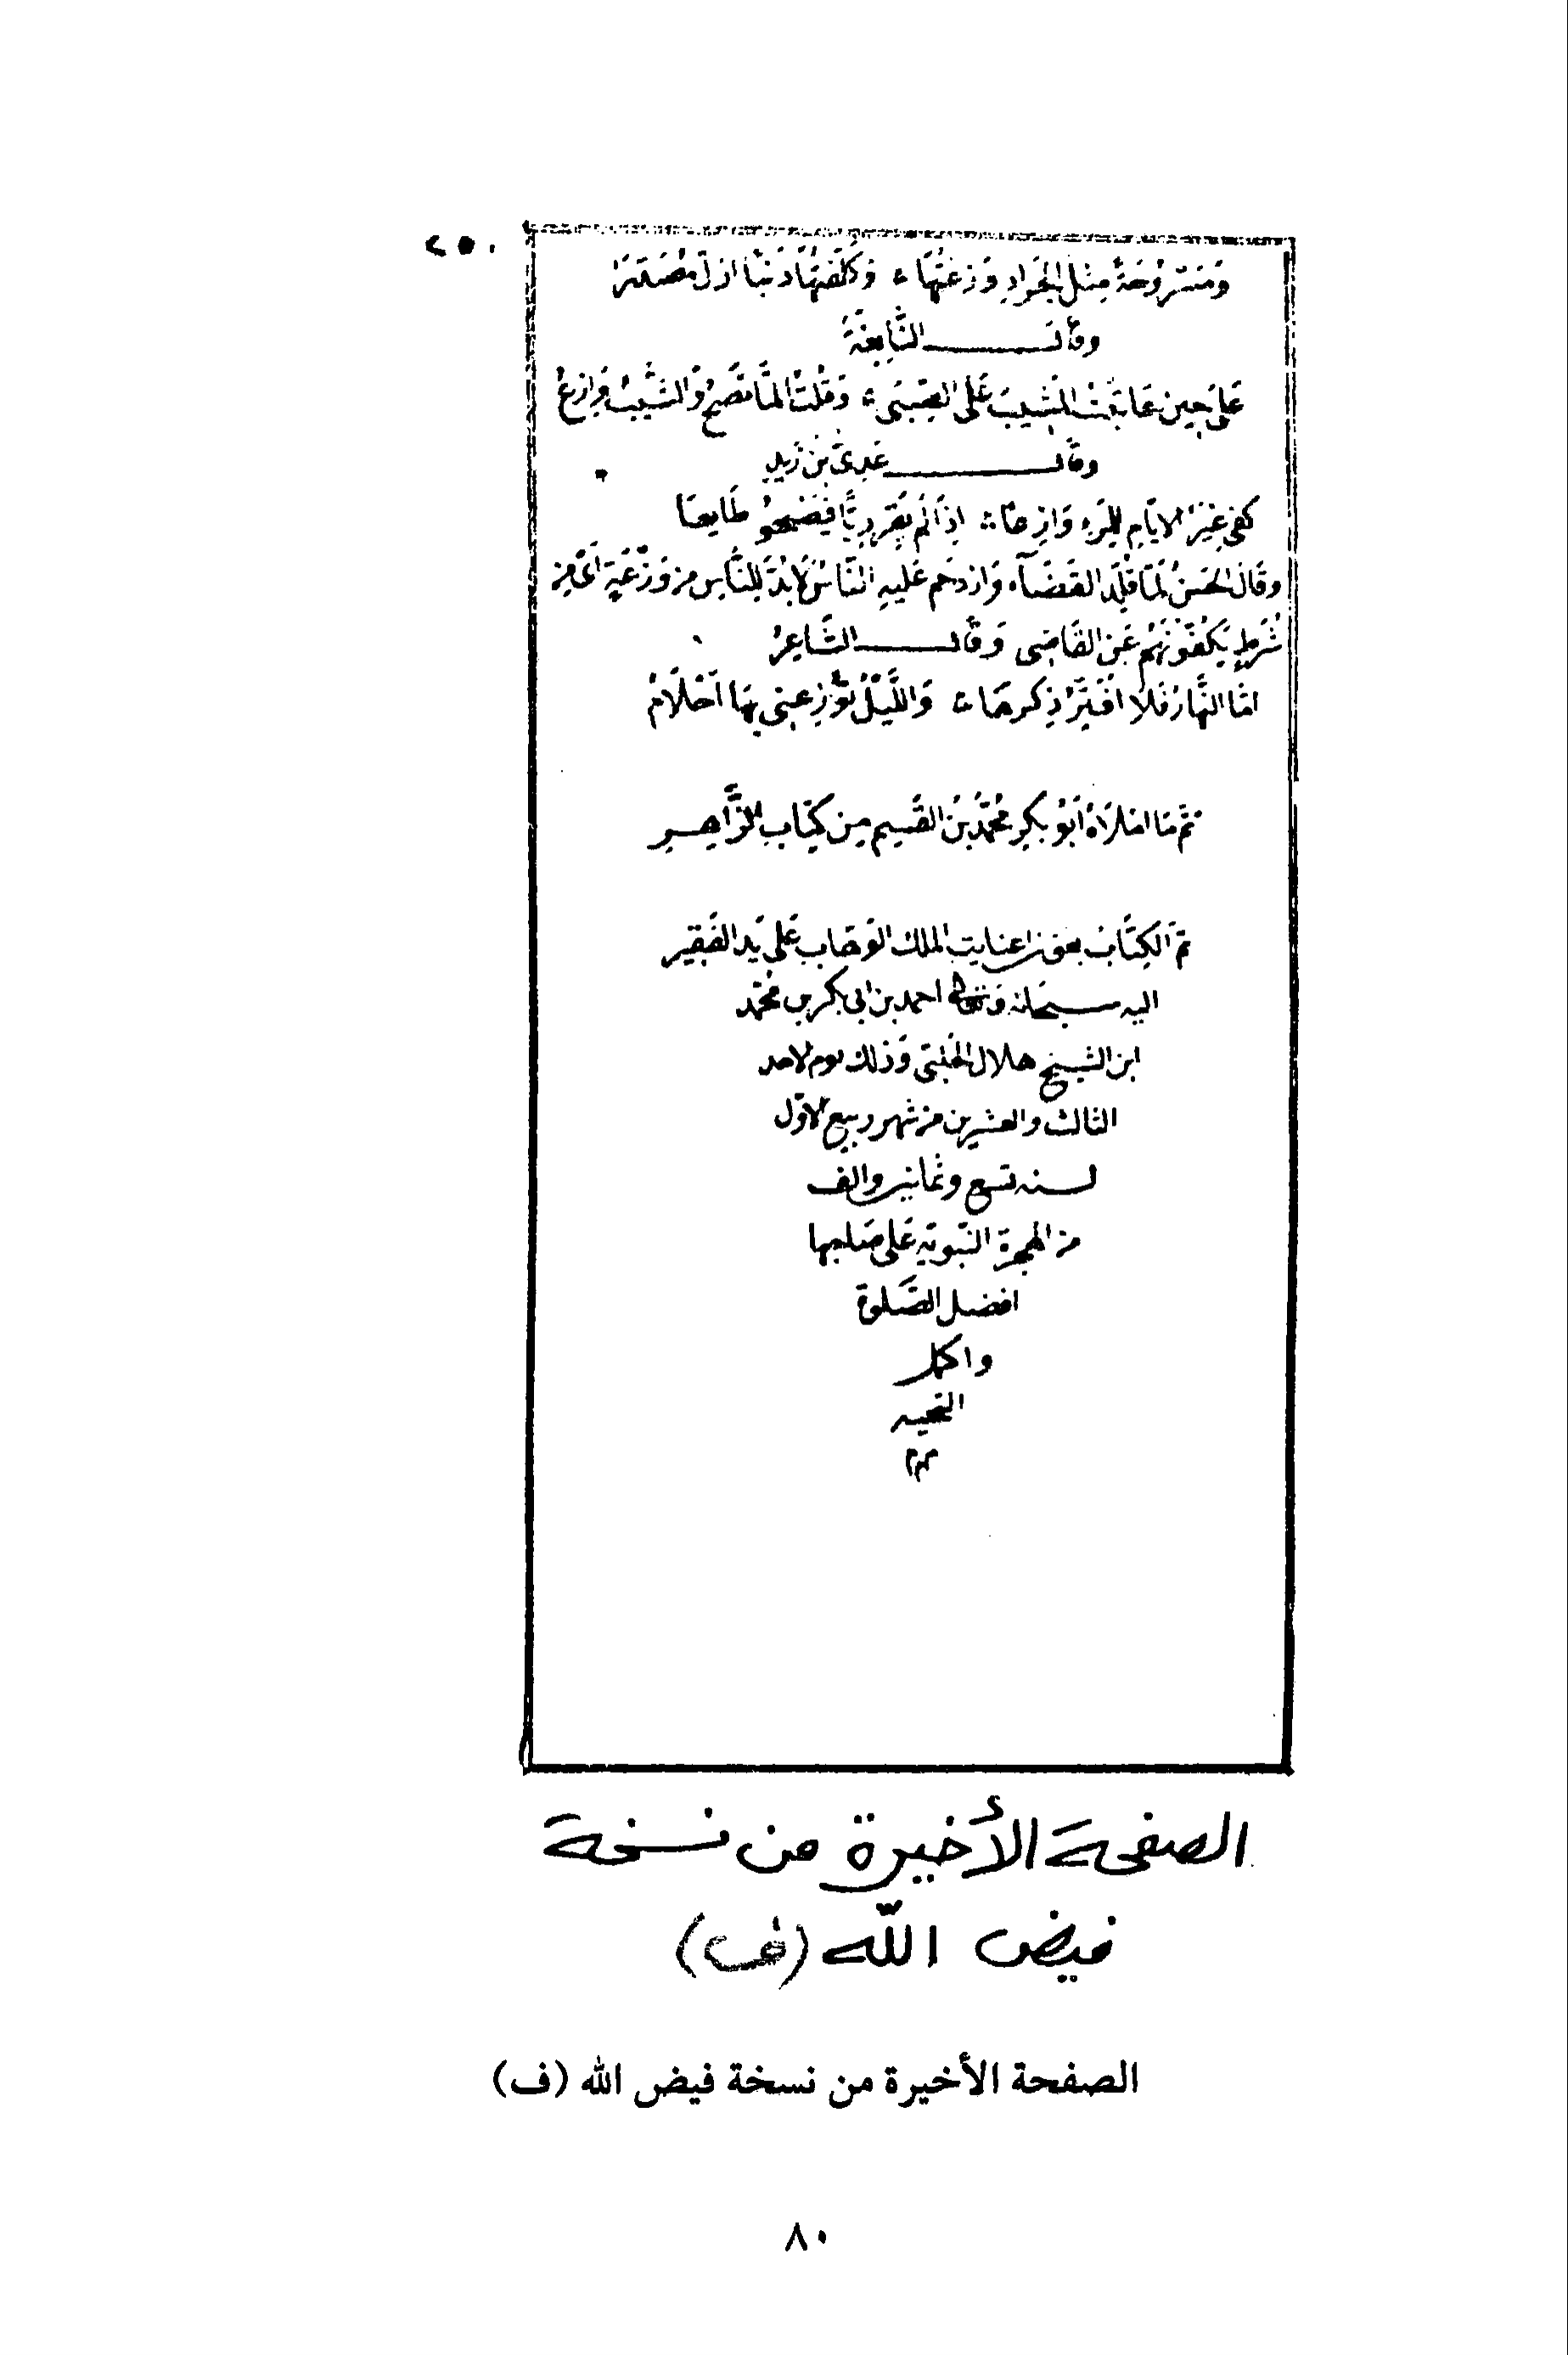 ٢٥٠
وَمَسْرُوحَةٌ مِثْلِ الجَرَادِ وَزَعْتُهَا وَكَلَّفْتُهَا ازل مُصَدَّرَا
وقال النَّابِغَةُ
عَلَى حِينَ عَاتَبْتُ المَشِيبَ عَلَى الصِّبَى وَقُلْتُ المَّا تَصْحُ وَالشَّيْبُ وَازِعُ
وقال عَدِىُّ بْنُ زَيْدٍ
كفى غِيَرُ الايّامِ لِلمَرْءِ وَازِعًا اِذَا لَم يَقِرَّ رِيًّا فَيَصْحُوَ طَايِعًا
وقَالَ الحَسَنُ لَمَّا قُلِّدَ القَضَآء وَازدَحَم عَليهِ النَّاسُ لَابُدَّ لِلنَّاسِ من وَزَعَةٍ اَىْ من
شُرَطٍ يَكُفُّوْنَهُم عَنِ القَاضِى وَقال الشَّاعِرُ
امَّا النَّهَارُ فَلا افَتِّرُ ذِكرهَا وَاللَّيْلُ تُوْزِعنِى بِهَا اَحْلَامُ
تم مَا امْلَاهُ اَبُوْ بَكرٍ مُحَمَّدُ بْنُ القسِمِ مِن كِتَابِ الزَّاهِرِ
تمَّ الكِتَابُ بعون عنايت الملك الوهاب عَلى يَد الفَقِير
اليه سبحانه وَتعالى احمد بن ابى بكر بن مُحَمَّد
ابن الشيخ هلال الحَلبَى وَذلك يوم الاحد
الثالث والعشرين من شهر ربيع الاوّل
لسنه تسع وثمانين والف
من الهجرة النبَويّه عَلى صَاحبها
افضل الصَّلوة
واكمل
التحيه
م م
الصفحة الأخيرة من نسخة
فيض اللّه (ف)
الصفحة الأخيرة من نسخة فيض الله (ف)
٨٠